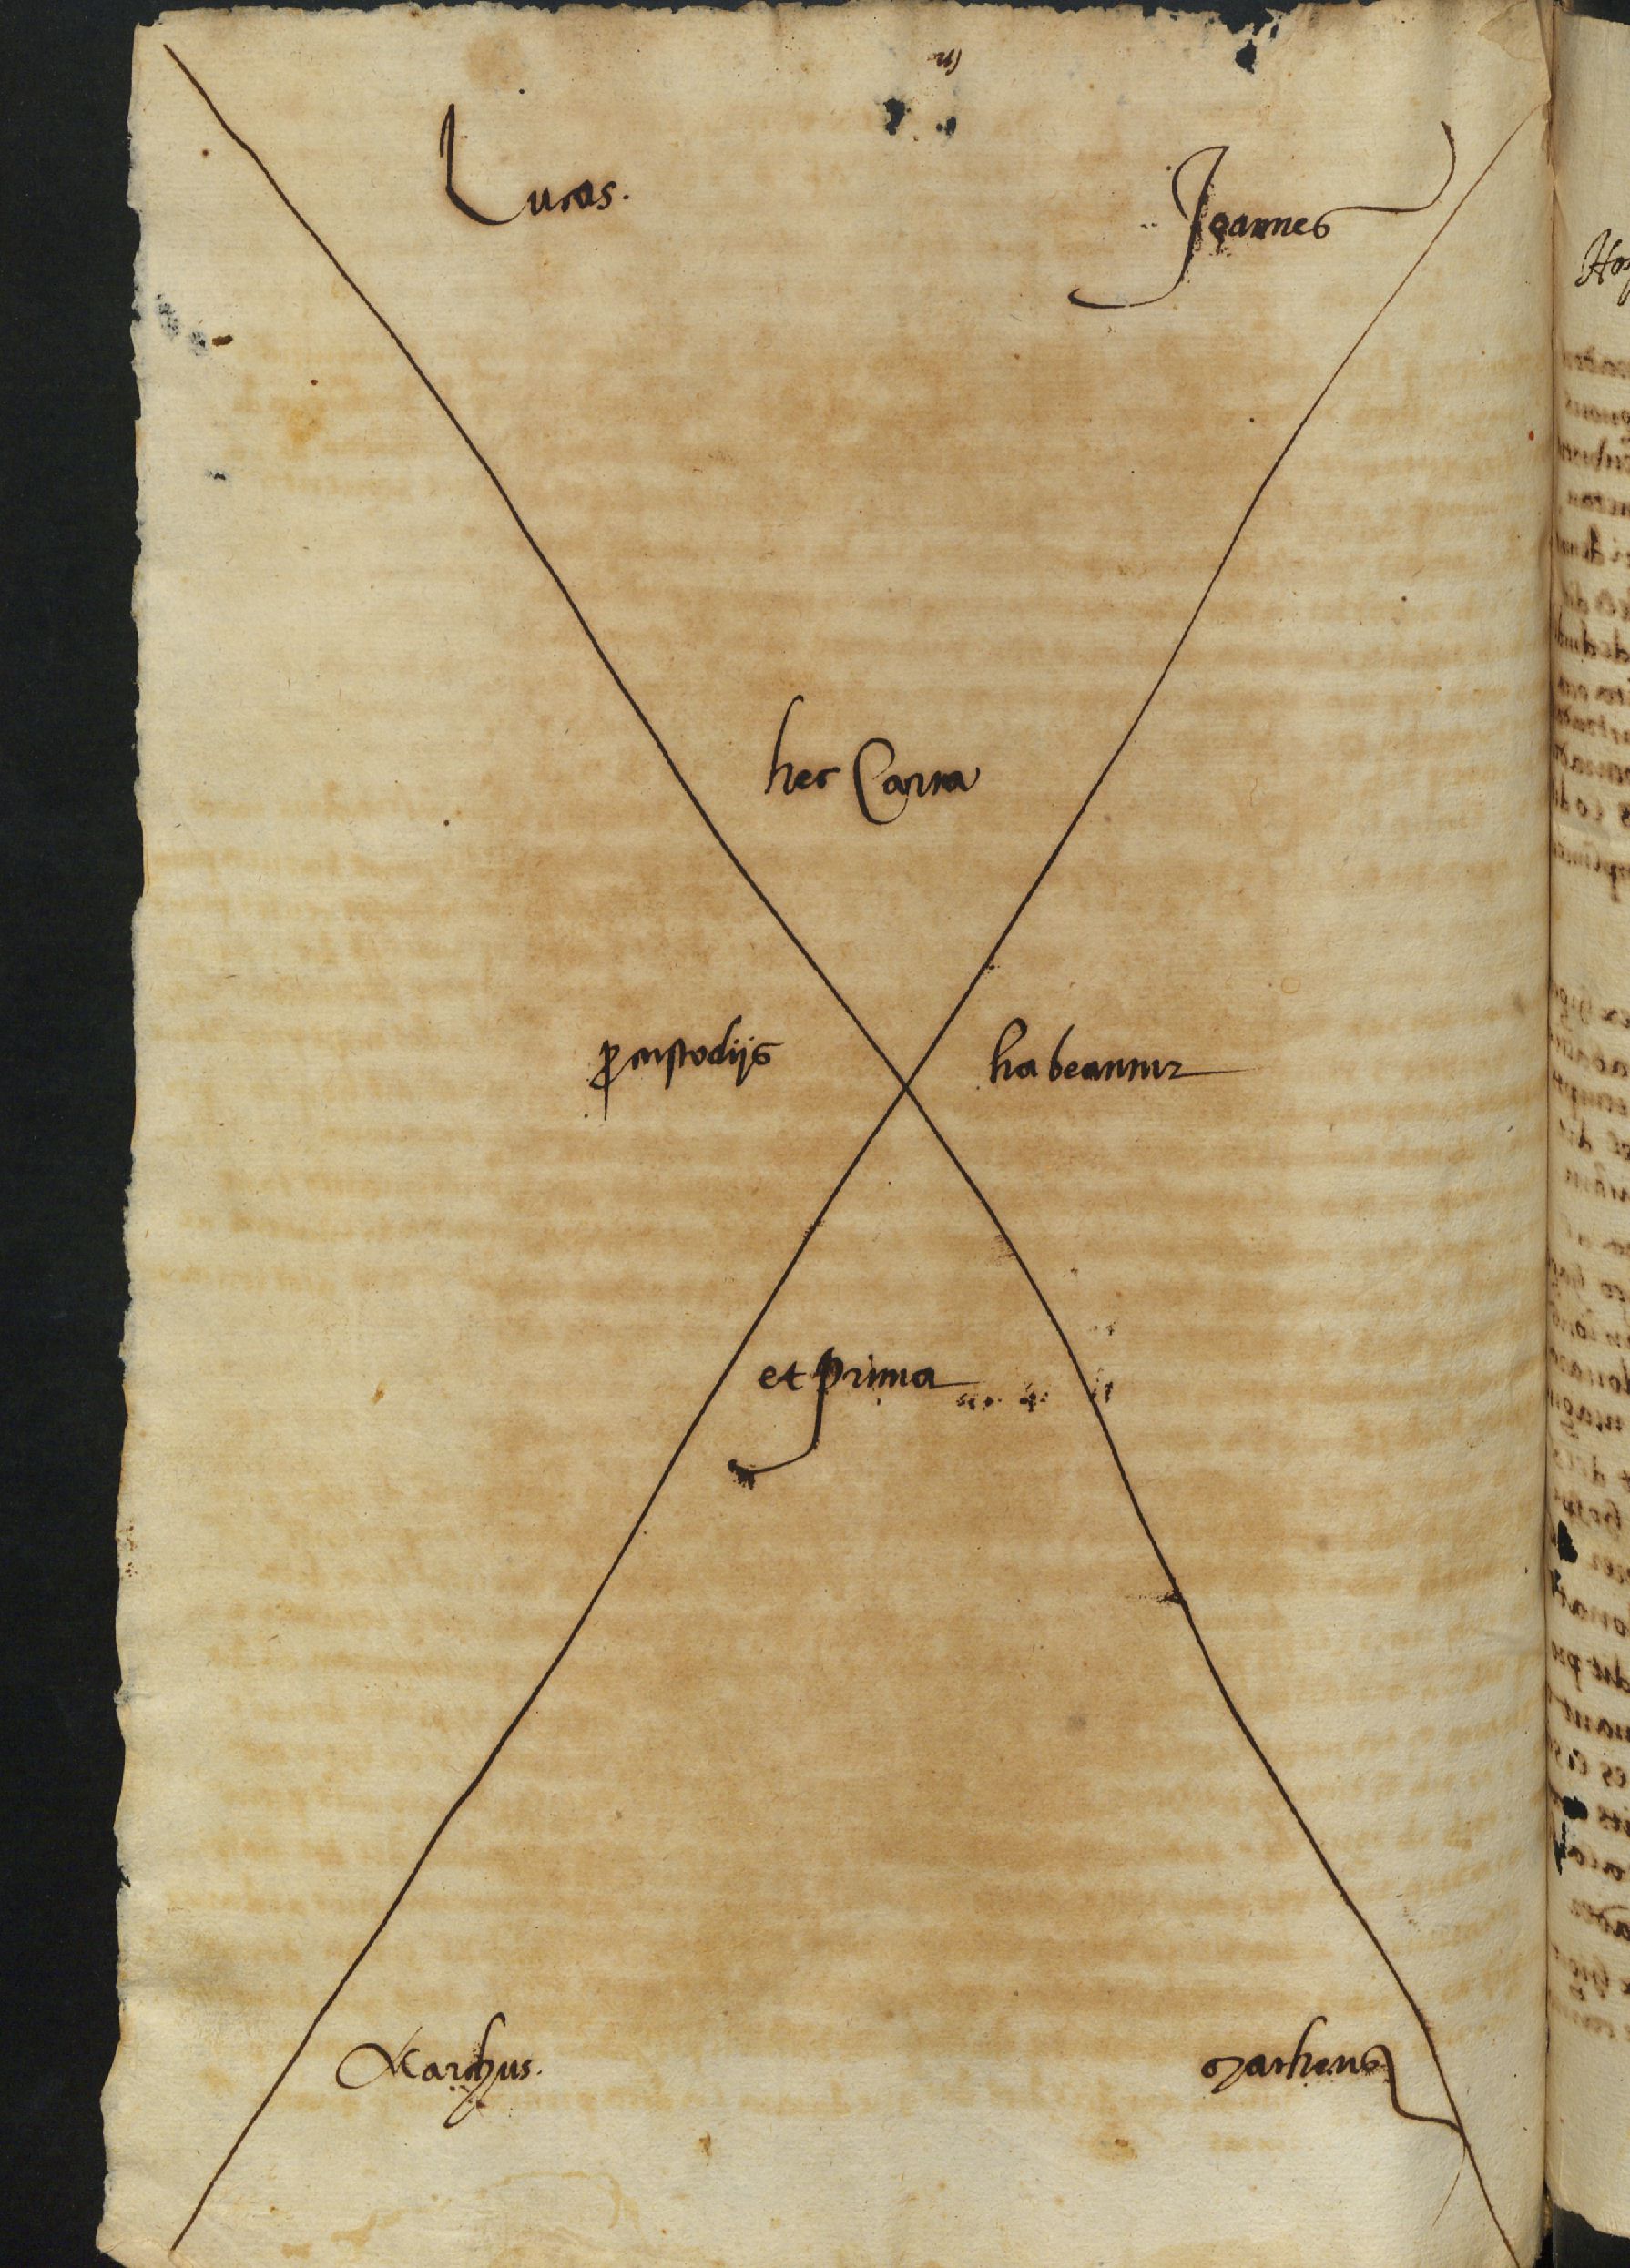 Lucas.
Joannes
hec Carta
ꝑ custodijs habeantur
et prima
Marchus.
Matheus